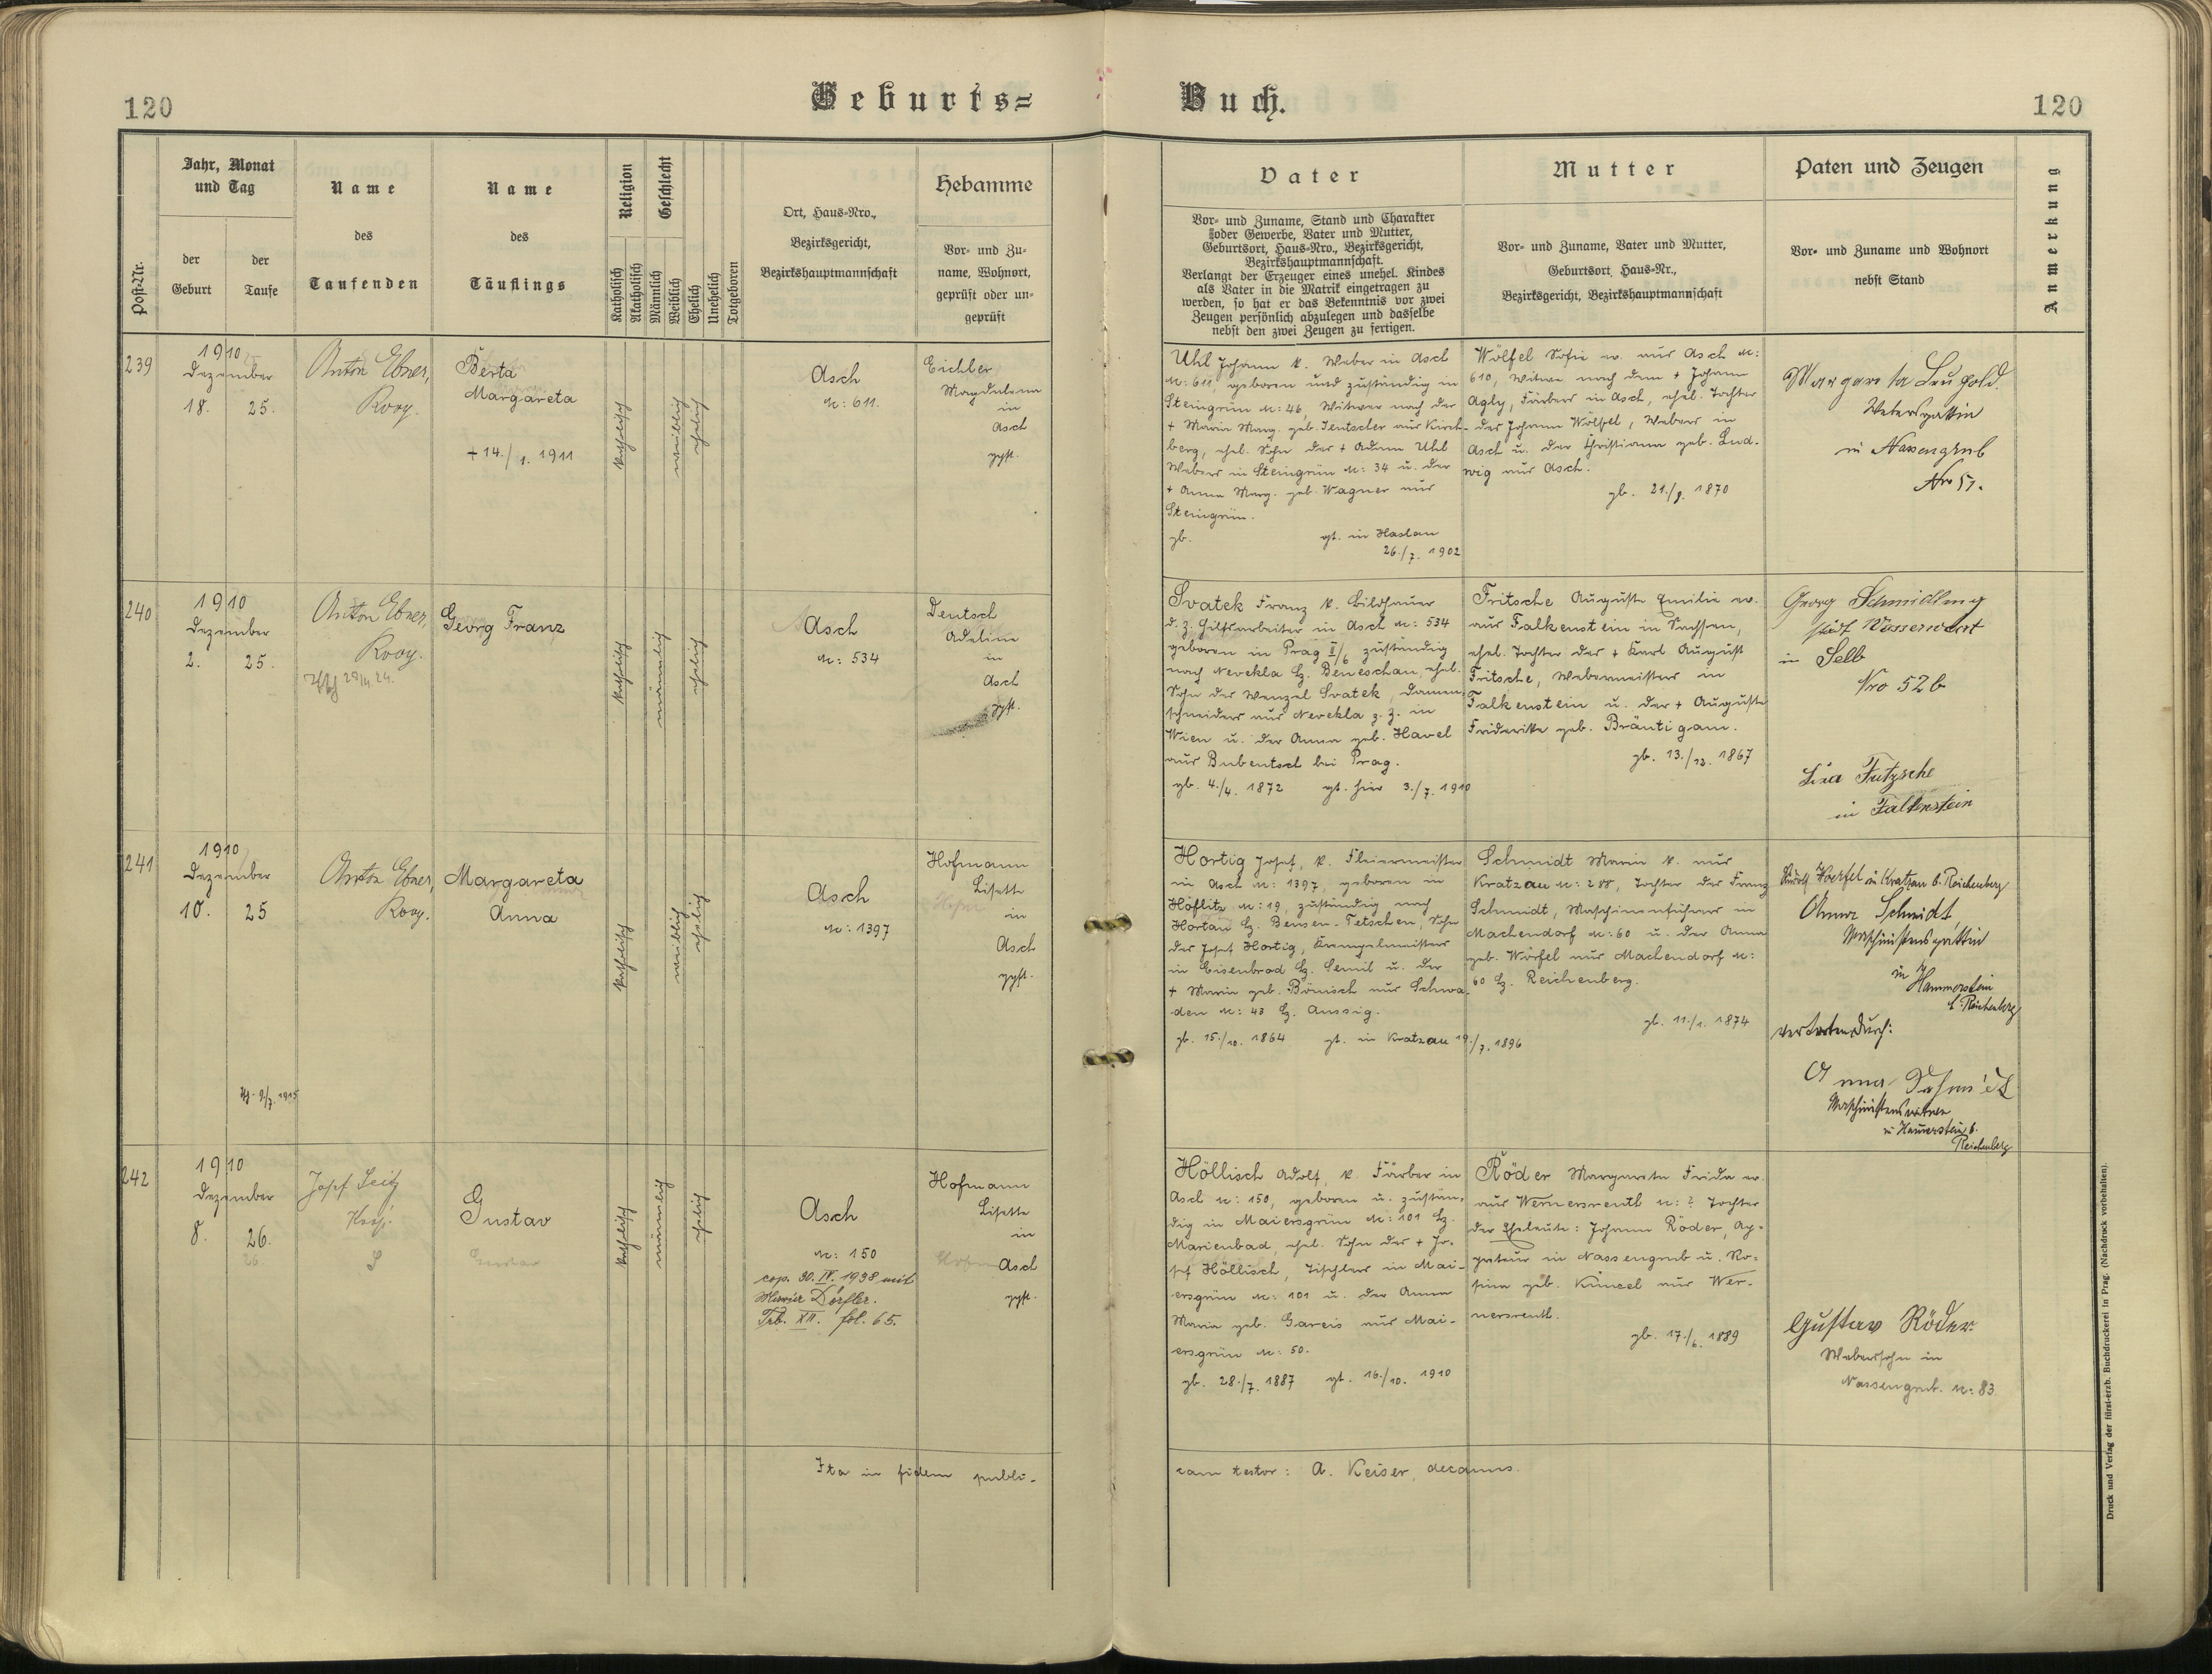 120
Geburts=
Buch.
120
Post-Nr.
Jahr, Monat
und Tag
der
Geburt
der
Taufe
Name
des
Taufenden
Name
des
Täuflings
Religion
Katholisch
Akatholisch
Geschlecht
Männlich
Weiblich
Ehelich
Unehelich
Totgeboren
Ort, Haus-Nro.,
Bezirksgericht,
Bezirkshauptmannschaft
Hebamme
Vor- und Zu-
name, Wohnort,
geprüft oder un-
geprüft
Vater
Vor- und Zuname, Stand und Charakter
oder Gewerbe, Vater und Mutter,
Geburtsort, Haus-Nro., Bezirksgericht,
Bezirkshauptmannschaft.
Verlangt der Erzeuger eines unehel. Kindes
als Vater in die Matrik eingetragen zu
werden, so hat er das Bekenntnis vor zwei
Zeugen persönlich abzulegen und dasselbe
nebst den zwei Zeugen zu fertigen.
Mutter
Vor- und Zuname, Vater und Mutter,
Geburtsort, Haus-Nr.,
Bezirksgericht, Bezirkshauptmannschaft
Paten und Zeugen
Vor- und Zuname und Wohnort
nebst Stand
Anmerkung
239
1910
Dezember
18. 25.
Anton Ebner,
Koop.
Berta
Margareta
+ 14./1. 1911
katholisch
weiblich
ehelich
Asch
N: 611.
Eichler
Magdalena
in
Asch
gepft.
Uhl Johann k. Weber in Asch
N: 611, geboren und zuständig in
Steingrün N: 46, Witwer nach der
+ Maria Marg. geb. Jentscher aus Kirch-
berg, ehel. Sohn des + Adam Uhl
Webers in Steingrün N: 34 u. der
+ Anna Marg. geb. Wagner aus
Steingrün.
gb. gt. in Haslau
26./7. 1902
Wölfel Sofie ev. aus Asch N:
610, Witwe nach dem + Johann
Agly, Färbers in Asch, ehel. Tochter
des Johann Wölfel, Webers in
Asch u. der Christiane geb. Lud-
wig aus Asch.
gb. 21./9. 1870
Margareta Leupold.
Webersgattin
in Nassengrub
Nro 51.
240
1910
Dezember
2. 25.
Anton Ebner,
Koop.
Georg Franz
katholisch
männlich
ehelich
Asch
N: 534
Deutsch
Adeline
in
Asch
gepft.
Svatek Franz k. Bildhauer
d. z. Hilfsarbeiter in Asch N: 534
geboren in Prag II/6, zuständig
nach Nevekla Bz. Beneschau, ehel.
Sohn des Wenzel Svatek, Damen-
schneiders aus Nevekla z. z. in
Wien u. der Anna geb. Havel
aus Bubentsch bei Prag.
gb. 4./4. 1872 gt. hier 3./7. 1910
Fritsche Auguste Emilie ev.
aus Falkenstein in Sachsen,
ehel. Tochter des + Karl August
Fritsche, Webermeisters in
Falkenstein u. der + Auguste
Friderike geb. Bräutigam.
gb. 13./12. 1867
Georg Schmidling
städt Wasserwart
in Selb
Nro 526
Lina Fritzsche
in Falkenstein
241
1910
Dezember
10. 25
Anton Ebner,
Koop.
Margareta
Anna
katholisch
weiblich
ehelich
Asch
N: 1397
Hofmann
Lisette
in
Asch
gepft.
Hortig Josef, k. Fleiermeister
in Asch N: 1397, geboren in
Höflitz N: 19, zuständig nach
Hortau Bz. Bensen-Tetschen, Sohn
des Josef Hortig, Krempelmeisters
in Eisenbrod Bz. Semil u. der
+ Maria geb. Bönisch aus Schwa-
den N: 43 Bz. Aussig.
gb. 15./10. 1864 gt. in Kratzau 19./7. 1896
Schmidt Maria k. aus
Kratzau N: 288, Tochter des Franz
Schmidt, Maschinenführers in
Machendorf N: 60 u. der Anna
geb. Wörfel aus Machendorf N:
60 Bz. Reichenberg.
gb. 11./1. 1874
Rudolf Woerfel in Kratzau b. Reichenberg
Anna Schmidt,
Maschinistensgattin
in
Hammerstein
b. Reichenberg
vertreten durch:
Anna Schmidt
Maschinistenswitwe
in Hammerstein b.
Reichenberg
242
1910
Dezember
8. 26.
Josef Seitz
Koop.
Gustav
katholisch
männlich
ehelich
Asch
N: 150
cop. 30. IV. 1938 mit
Maria Dörfler.
Trb. XII. fol. 65.
Hofmann
Lisette
in
Asch
gepft.
Höllisch Adolf, k. Färber in
Asch N: 150, geboren u. zustän-
dig in Maiersgrün N: 101 Bz.
Marienbad, ehel. Sohn des + Jo-
sef Höllisch, Tischlers in Mai-
ersgrün N: 101 u. der Anna
Maria geb. Gareis aus Mai-
ersgrün N: 50.
gb. 28./7. 1887 gt. 16./10. 1910
Röder Margareta Frida ev.
aus Wernersreuth N: ? Tochter
der Eheleute: Johann Röder, Ap-
preteur in Nassengrub u. Ro-
sina geb. Künzel aus Wer-
nersreuth.
gb. 17./6. 1889
Gustav Röder
Weberssohn in
Nassengrub. N: 83.
Ita in fidem publi-
cam testor: A. Keiser, decanus.
Druck und Verlag der fürst-erzb. Buchdruckerei in Prag. (Nachdruck vorbehalten).